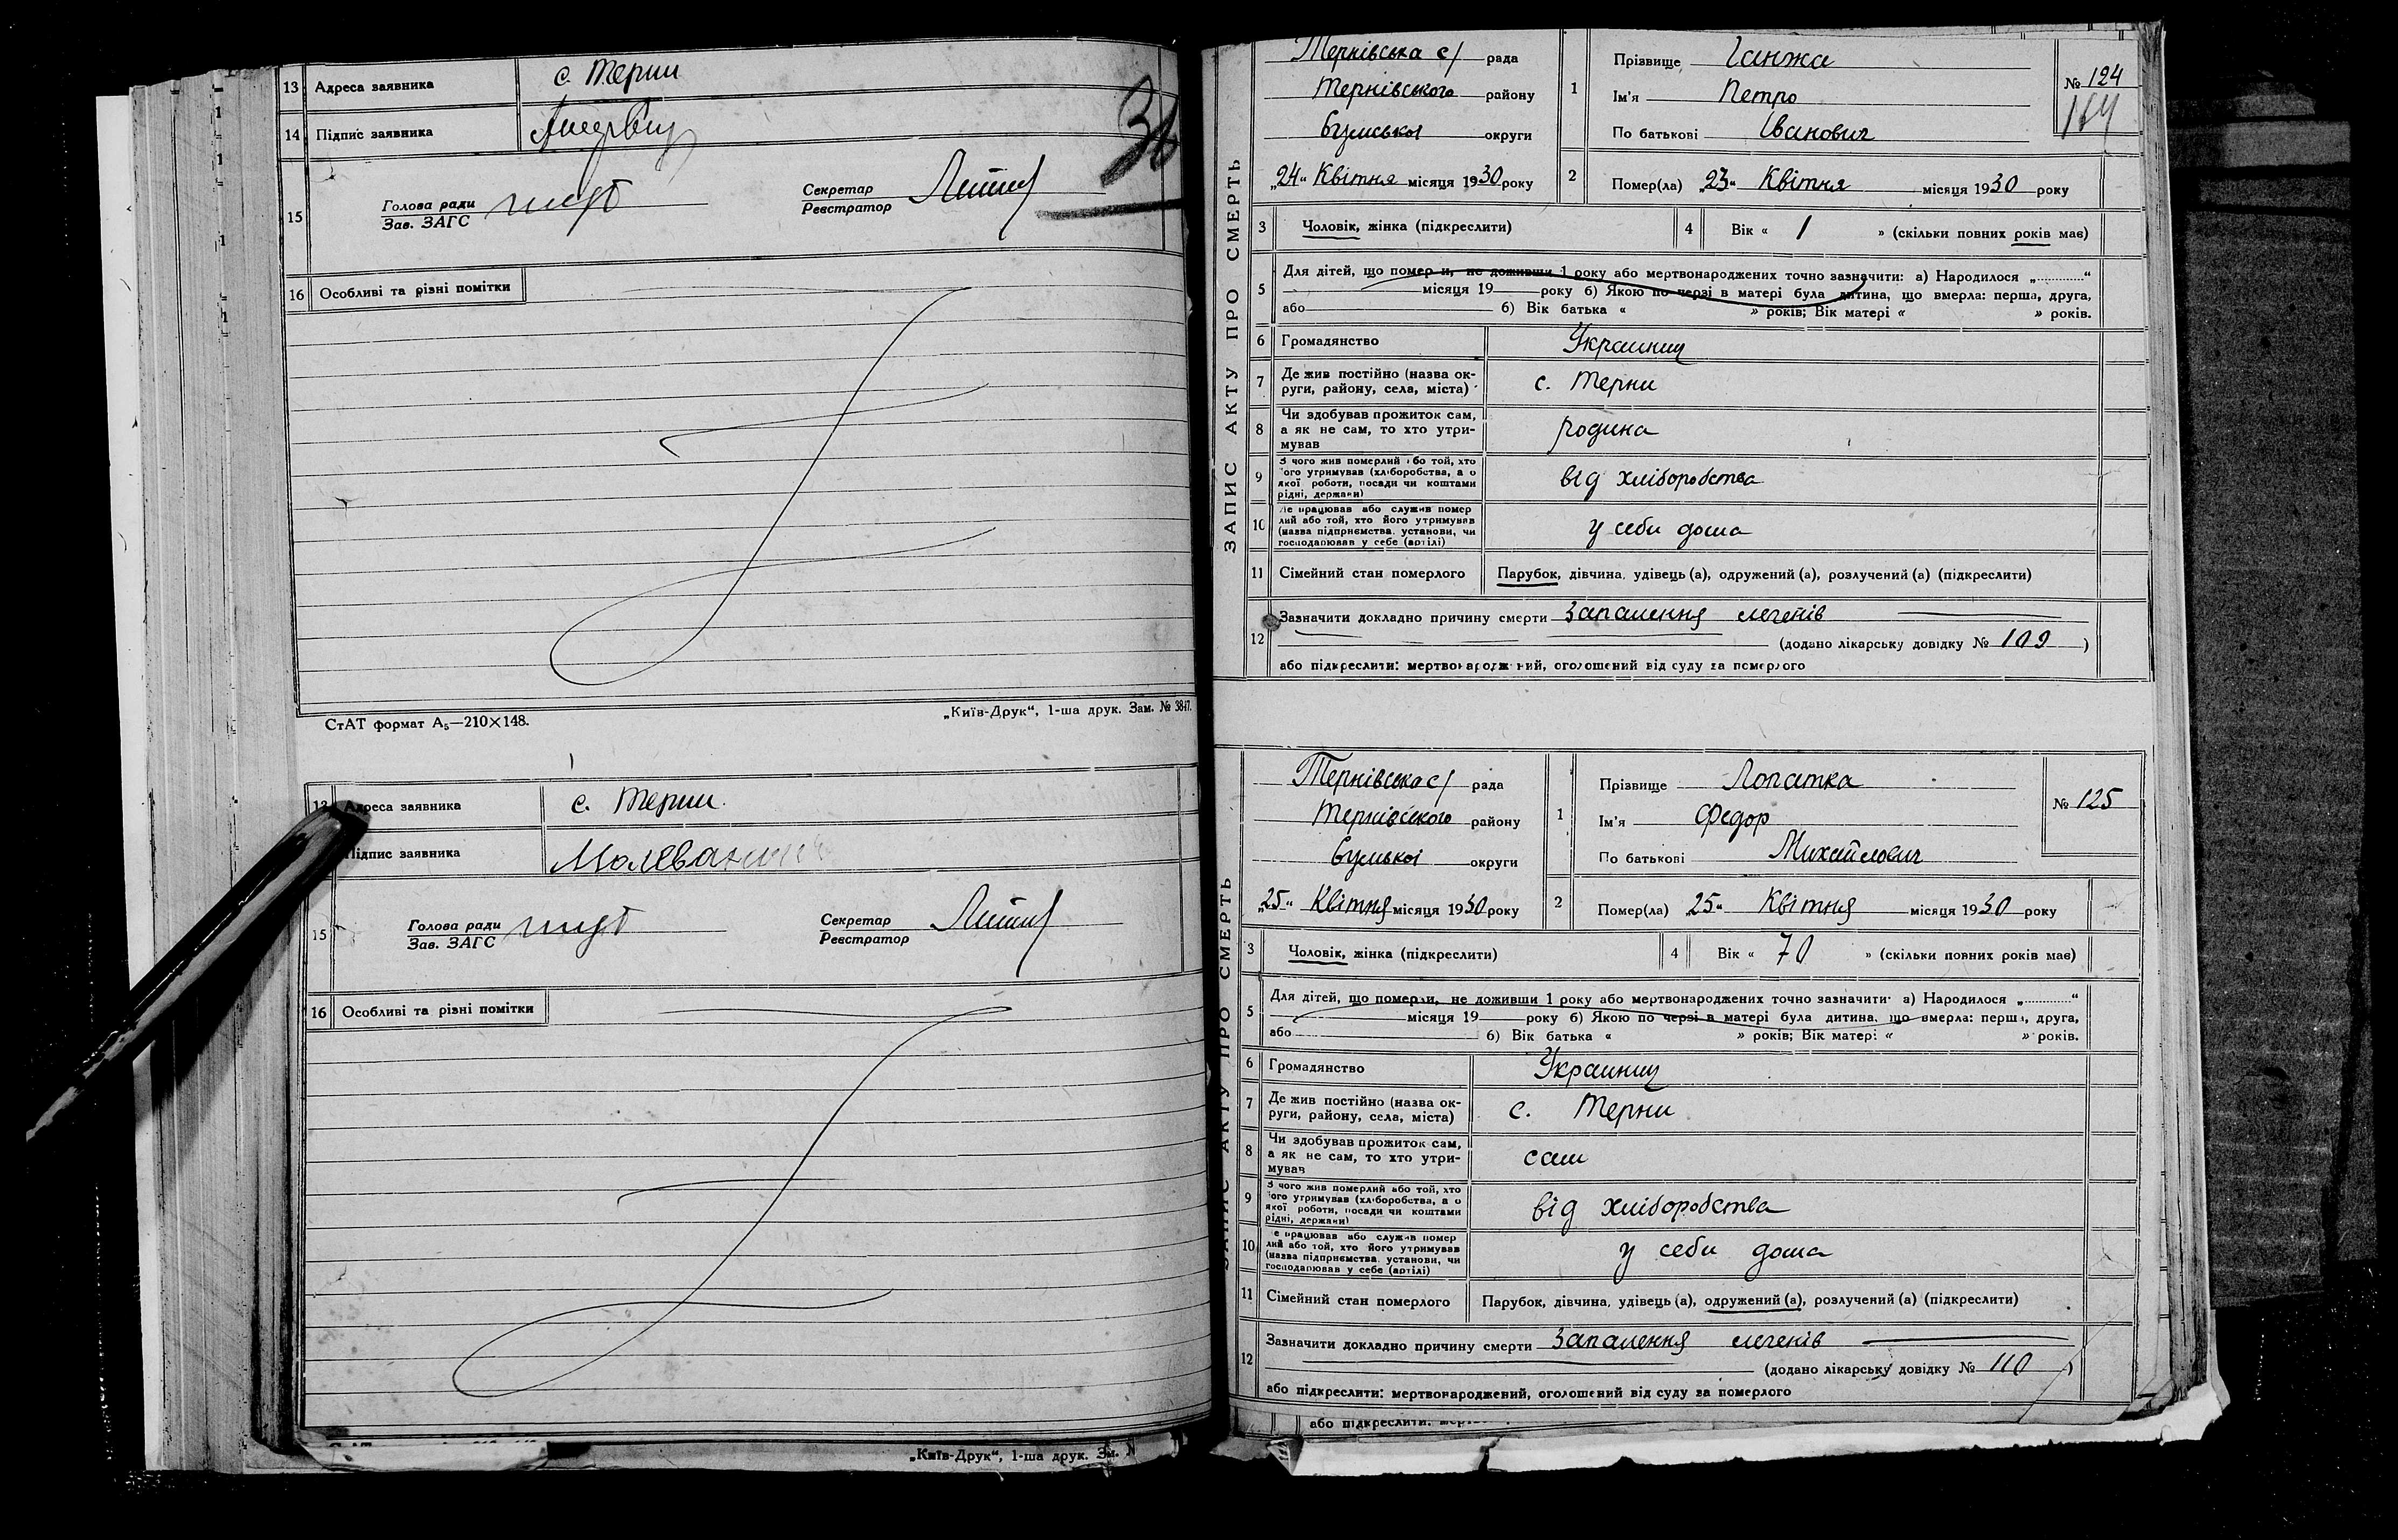 13 Адреса заявника с. Терни
14 Підпис заявника
15 Голова ради
Зав. ЗАГС
Секретар
Реєстратор
16 Особливі та різні помітки
СтАТ формат А₅—210×148.
„Київ-Друк“, 1-ша друк. Зам. № 3847.
13 Адреса заявника с. Терни
Підпис заявника
15 Голова ради
Зав. ЗАГС
Секретар
Реєстратор
16 Особливі та різні помітки
„Київ-Друк“, 1-ша друк. Зам.
ЗАПИС АКТУ ПРО СМЕРТЬ
Тернівська с/ рада
Тернівського району
Сумської округи
„24“ Квітня місяця 1930 року
1 Прізвище Ганжа
Ім'я Петро
По батькові Іванович
№ 124
164
2 Помер(ла) „23“ Квітня місяця 1930 року
3 Чоловік, жінка (підкреслити)
4 Вік « 1 » (скільки повних років має)
5 Для дітей, що померли, не доживши 1 року або мертвонароджених точно зазначити: а) Народилося „............“
місяця 19 року б) Якою по черзі в матері була дитина, що вмерла: перша, друга,
або б) Вік батька « » років; Вік матері « » років.
6 Громадянство Украинец
7 Де жив постійно (назва ок-
руги, району, села, міста) с. Терни
8 Чи здобував прожиток сам,
а як не сам, то хто утри-
мував родина
9 З чого жив померлий або той, хто
його утримував (хліборобства, а о
якої роботи, посади чи коштами
рідні, держави) від хліборобства
10 Де працював або служив помер
лий або той, хто його утримував
(назва підприємства, установи, чи
господарював у себе (артілі) у себи дома
11 Сімейний стан померлого Парубок, дівчина, удівець (а), одружений (а), розлучений (а) (підкреслити)
12 Зазначити докладно причину смерти Запалення легенів
(додано лікарську довідку № 109 )
або підкреслити: мертвонароджений, оголошений від суду за померлого
ЗАПИС АКТУ ПРО СМЕРТЬ
Тернівська с/ рада
Тернівського району
Сумської округи
„25“ Квітня місяця 1930 року
1 Прізвище Лопатка
Ім'я Федор
По батькові Михайлович
№ 125
2 Помер(ла) „25“ Квітня місяця 1930 року
3 Чоловік, жінка (підкреслити)
4 Вік « 70 » (скільки повних років має)
5 Для дітей, що померли, не доживши 1 року або мертвонароджених точно зазначити: а) Народилося „............“
місяця 19 року б) Якою по черзі в матері була дитина, що вмерла: перша, друга,
або б) Вік батька « » років; Вік матері « » років.
6 Громадянство Украинец
7 Де жив постійно (назва ок-
руги, району, села, міста) с. Терни
8 Чи здобував прожиток сам,
а як не сам, то хто утри-
мував сам
9 З чого жив померлий або той, хто
його утримував (хліборобства, а о
якої роботи, посади чи коштами
рідні, держави) від хліборобства
10 Де працював або служив помер
лий або той, хто його утримував
(назва підприємства, установи, чи
господарював у себе (артілі) у себи дома
11 Сімейний стан померлого Парубок, дівчина, удівець (а), одружений (а), розлучений (а) (підкреслити)
12 Зазначити докладно причину смерти Запалення легенів
(додано лікарську довідку № 110 )
або підкреслити: мертвонароджений, оголошений від суду за померлого
або підкреслити: